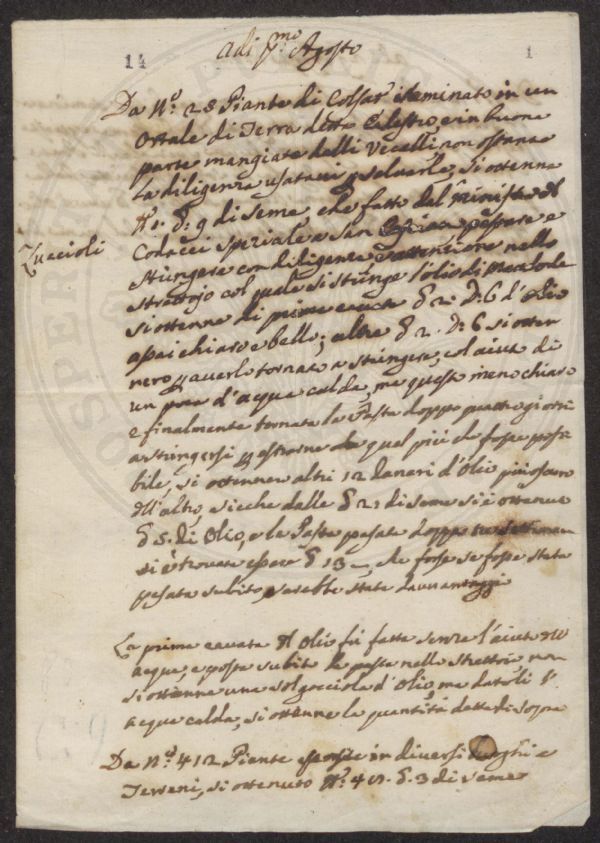 14
adi p.mo Agosto
1
Da N.o 28 Piante di Colsat seminato in un
Ortale di Terra detto e in buona
parte mangiate dalli Uccelli, non ostante
la diligenza usatavi p. salvarle, si ottenne
N.o 9 di Seme, che fatto dal ministro del
Zuccioli
Codacci speziale a San pestare e
stringere con diligenza e attenzione nello
strettojo col quale si stringe l'olio di Mandorle
si ottenne di prima cavata 2. D. 6 d'olio
assai chiaro e bello; altre 2. D. 6 si otten
nero p averlo tornato a stringere, col ajuto di
un poca d'acqua calda, ma questo meno chiaro
e finalmente tornata la Pasta doppo quattro giorni
a stringersi p estrarne quel più che fosse possi
bile, si ottennero altri 12 danari d'Olio più oscuro
dell'altro, sicche dalle 21 di seme si è ottenuto
5. di Olio, e la Pasta pesata doppo tre settimane
si è trovata essere 13 che forse se fosse stata
pesata subito, sarebbe stata davvantaggio
La prima cavata del Olio fù fatta senza l'ajuto dell'
acqua, e posta subito la pasta nello strettojo, non
si ottenne una sol gocciola d'olio, ma datoli l'
acqua calda, si ottenne la quantità detta di sopra
Da N.o 412 Piante in diversi luoghi e
Terreni, si ottenuto 3 di seme